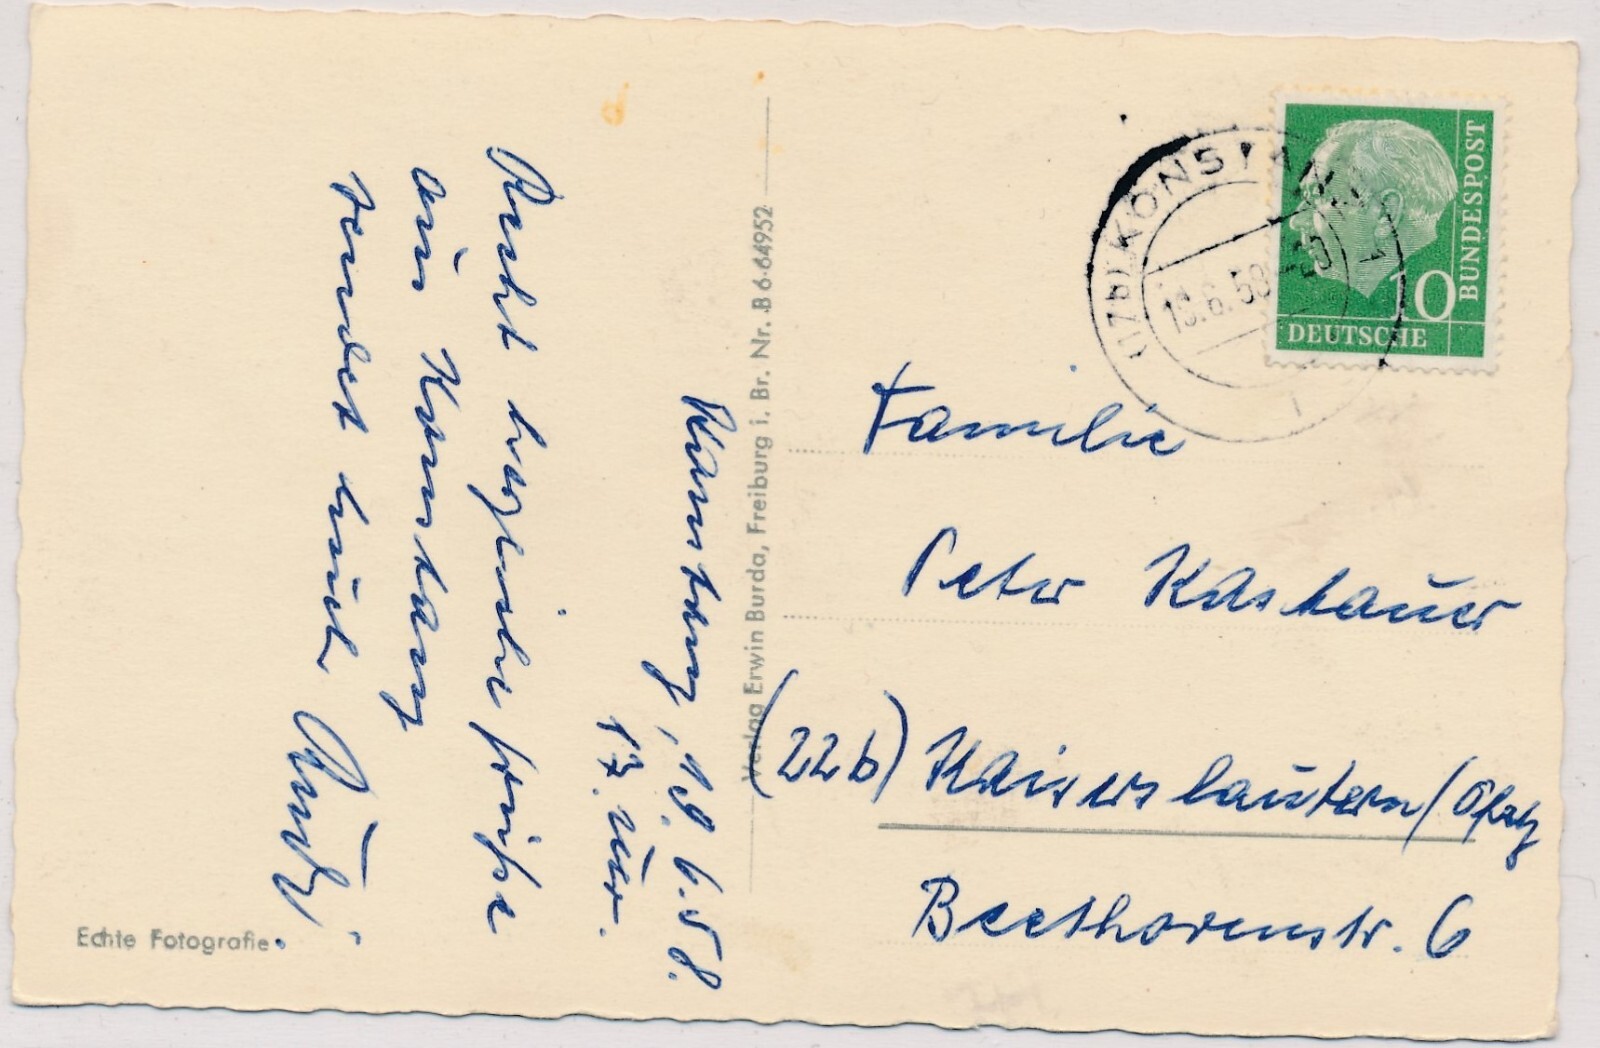 Konstanz, 19.6.58.
17. Uhr.
Recht herzliche Grüße
aus Konstanz
sendet Euch
Echte Fotografie.
Verlag Erwin Burda, Freiburg i. Br. Nr. B 6·64952
(17b) KONSTANZ
19.6.58
DEUTSCHE
BUNDESPOST
10
Familie
Peter Kastauer
(22b) Kaiserslautern/Pfalz
Beethovenstr. 6